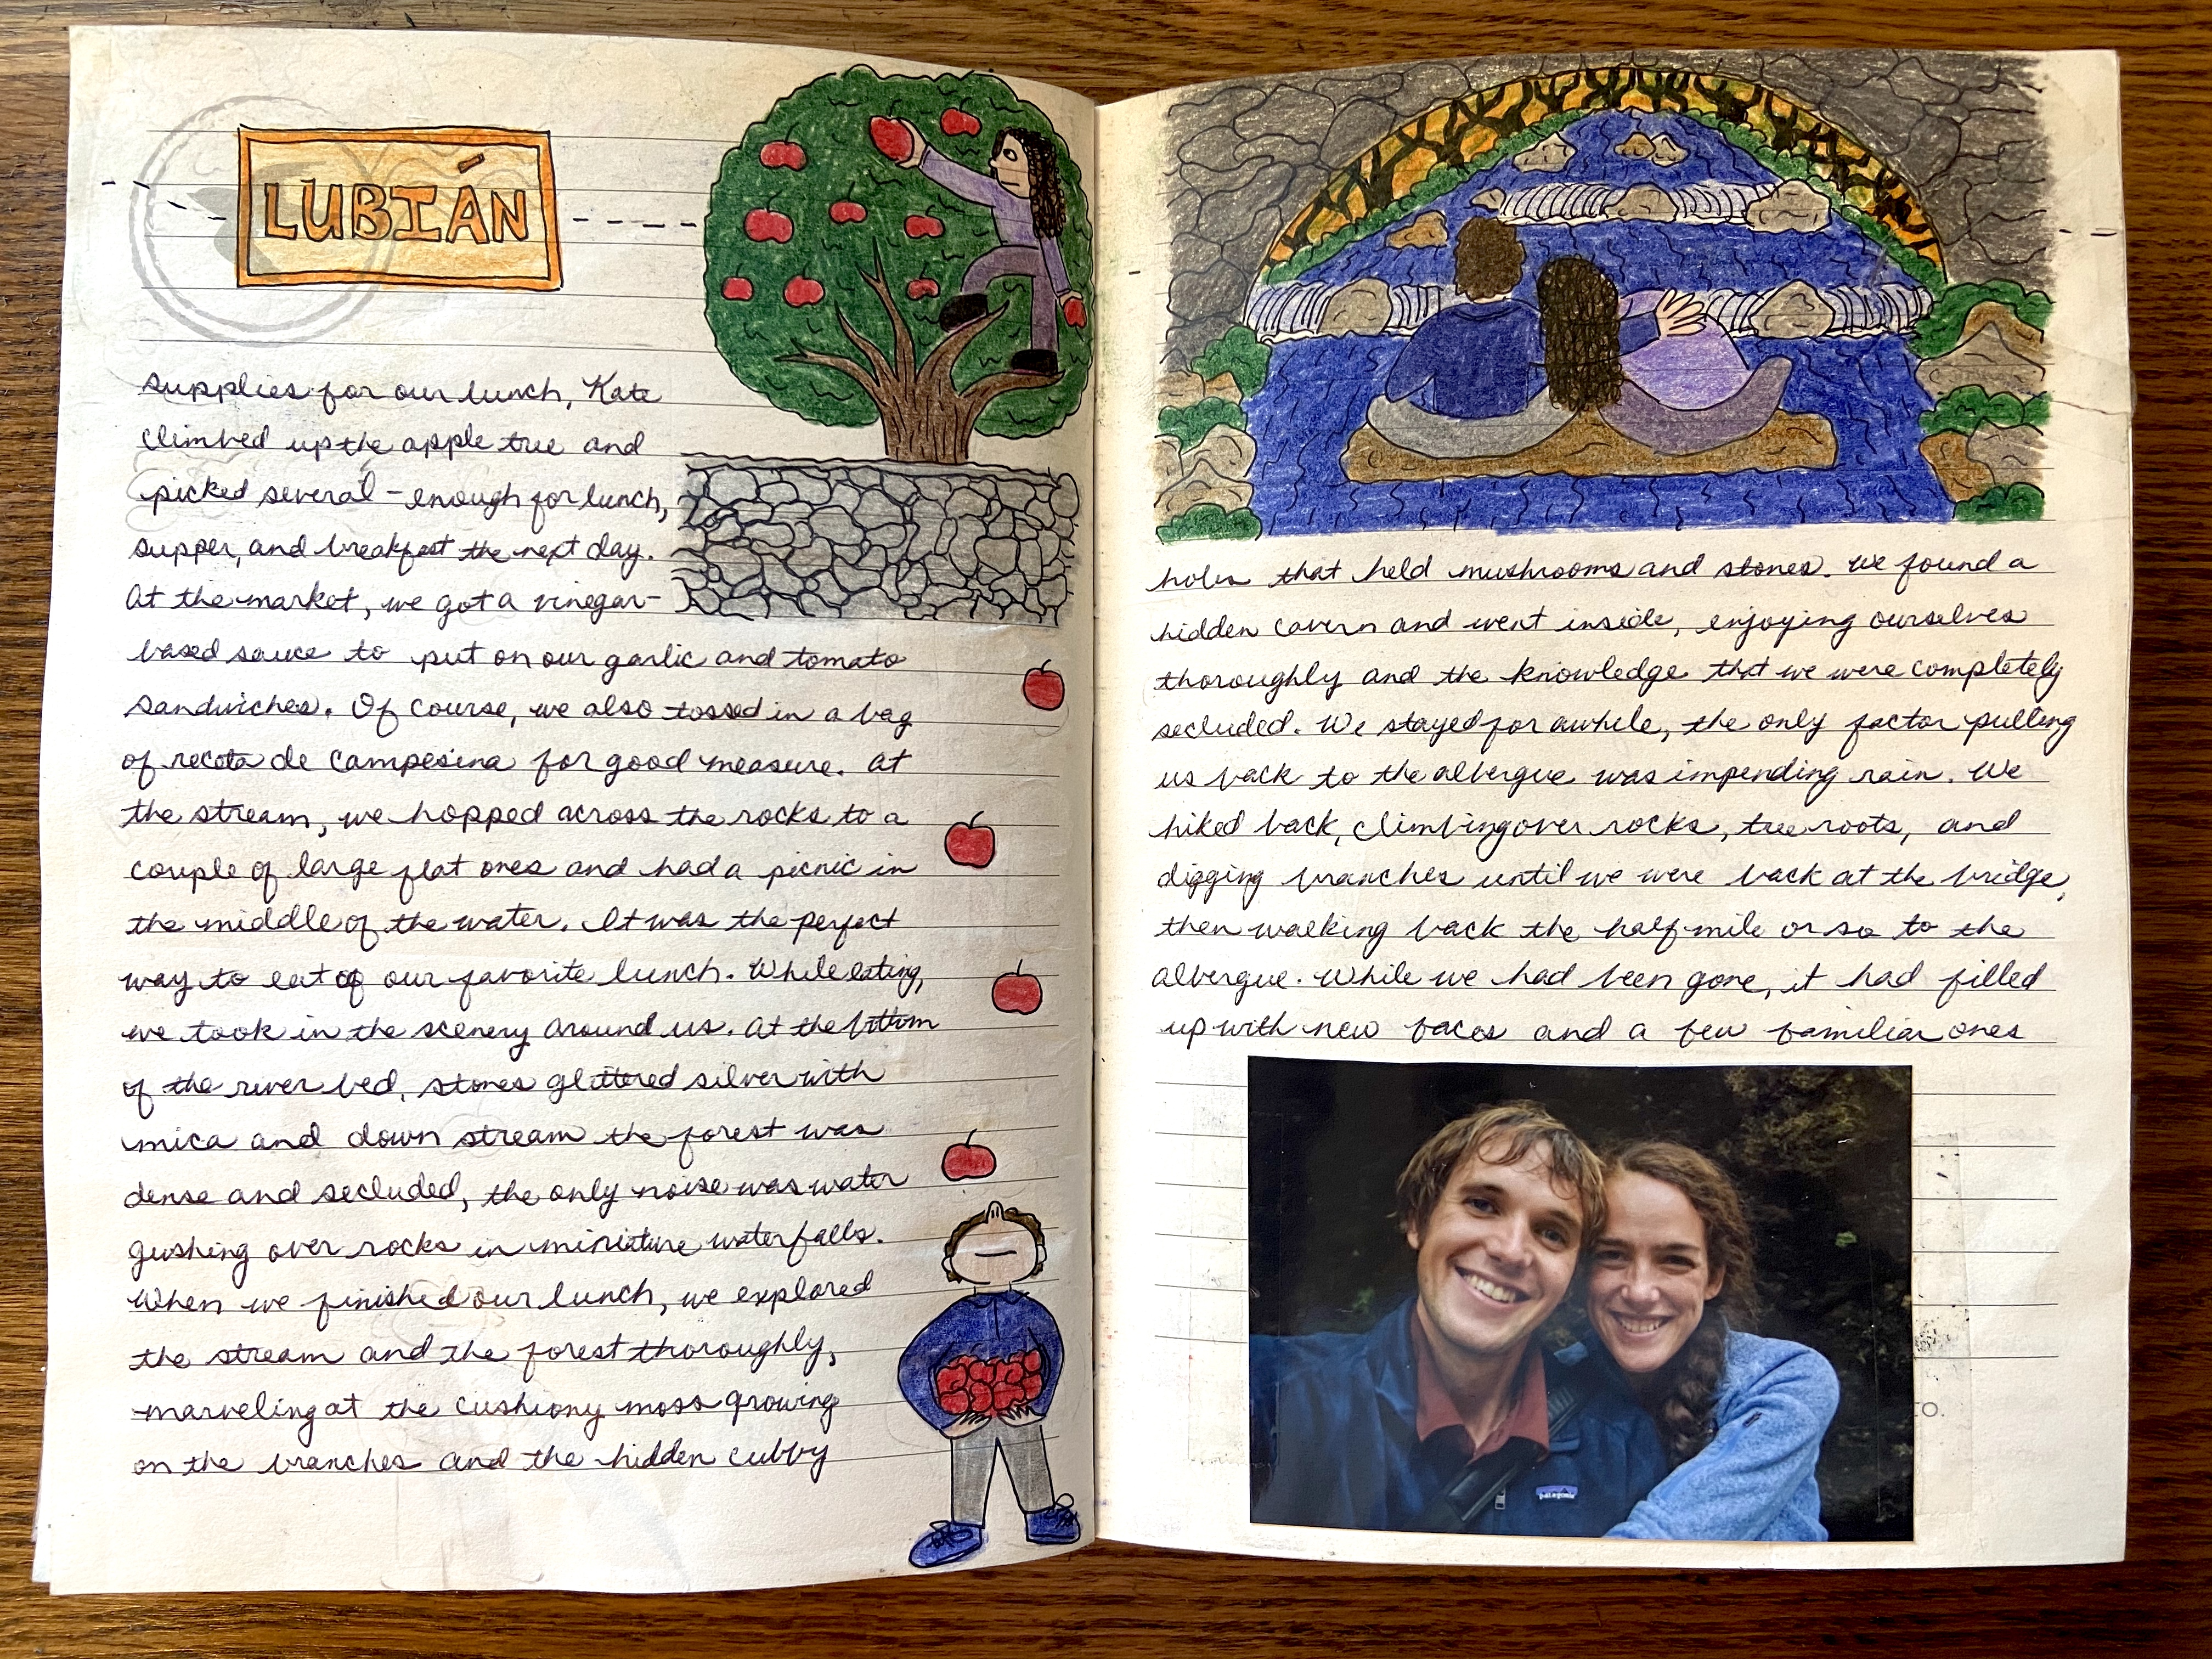 LUBIÁN
supplies for our lunch, Kate
climbed up the apple tree and
picked several - enough for lunch,
supper, and breakfast the next day.
At the market, we got a vinegar-
based sauce to put on our garlic and tomato
sandwiches. Of course, we also tossed in a bag
of recota de campesina for good measure. At
the stream, we hopped across the rocks to a
couple of large flat ones and had a picnic in
the middle of the water. It was the perfect
way to eat of our favorite lunch. While eating,
we took in the scenery around us. At the bottom
of the river bed, stones glittered silver with
mica and down stream the forest was
dense and secluded, the only noise was water
gushing over rocks in miniature waterfalls.
When we finished our lunch, we explored
the stream and the forest thoroughly,
marveling at the cushiony moss growing
on the branches and the hidden cubby
holes that held mushrooms and stones. We found a
hidden cavern and went inside, enjoying ourselves
thoroughly and the knowledge that we were completely
secluded. We stayed for awhile, the only factor pulling
us back to the albergue was impending rain. We
hiked back, climbing over rocks, tree roots, and
digging branches until we were back at the bridge,
then walking back the half mile or so to the
albergue. While we had been gone, it had filled
up with new faces and a few familiar ones
patagonia
TO.